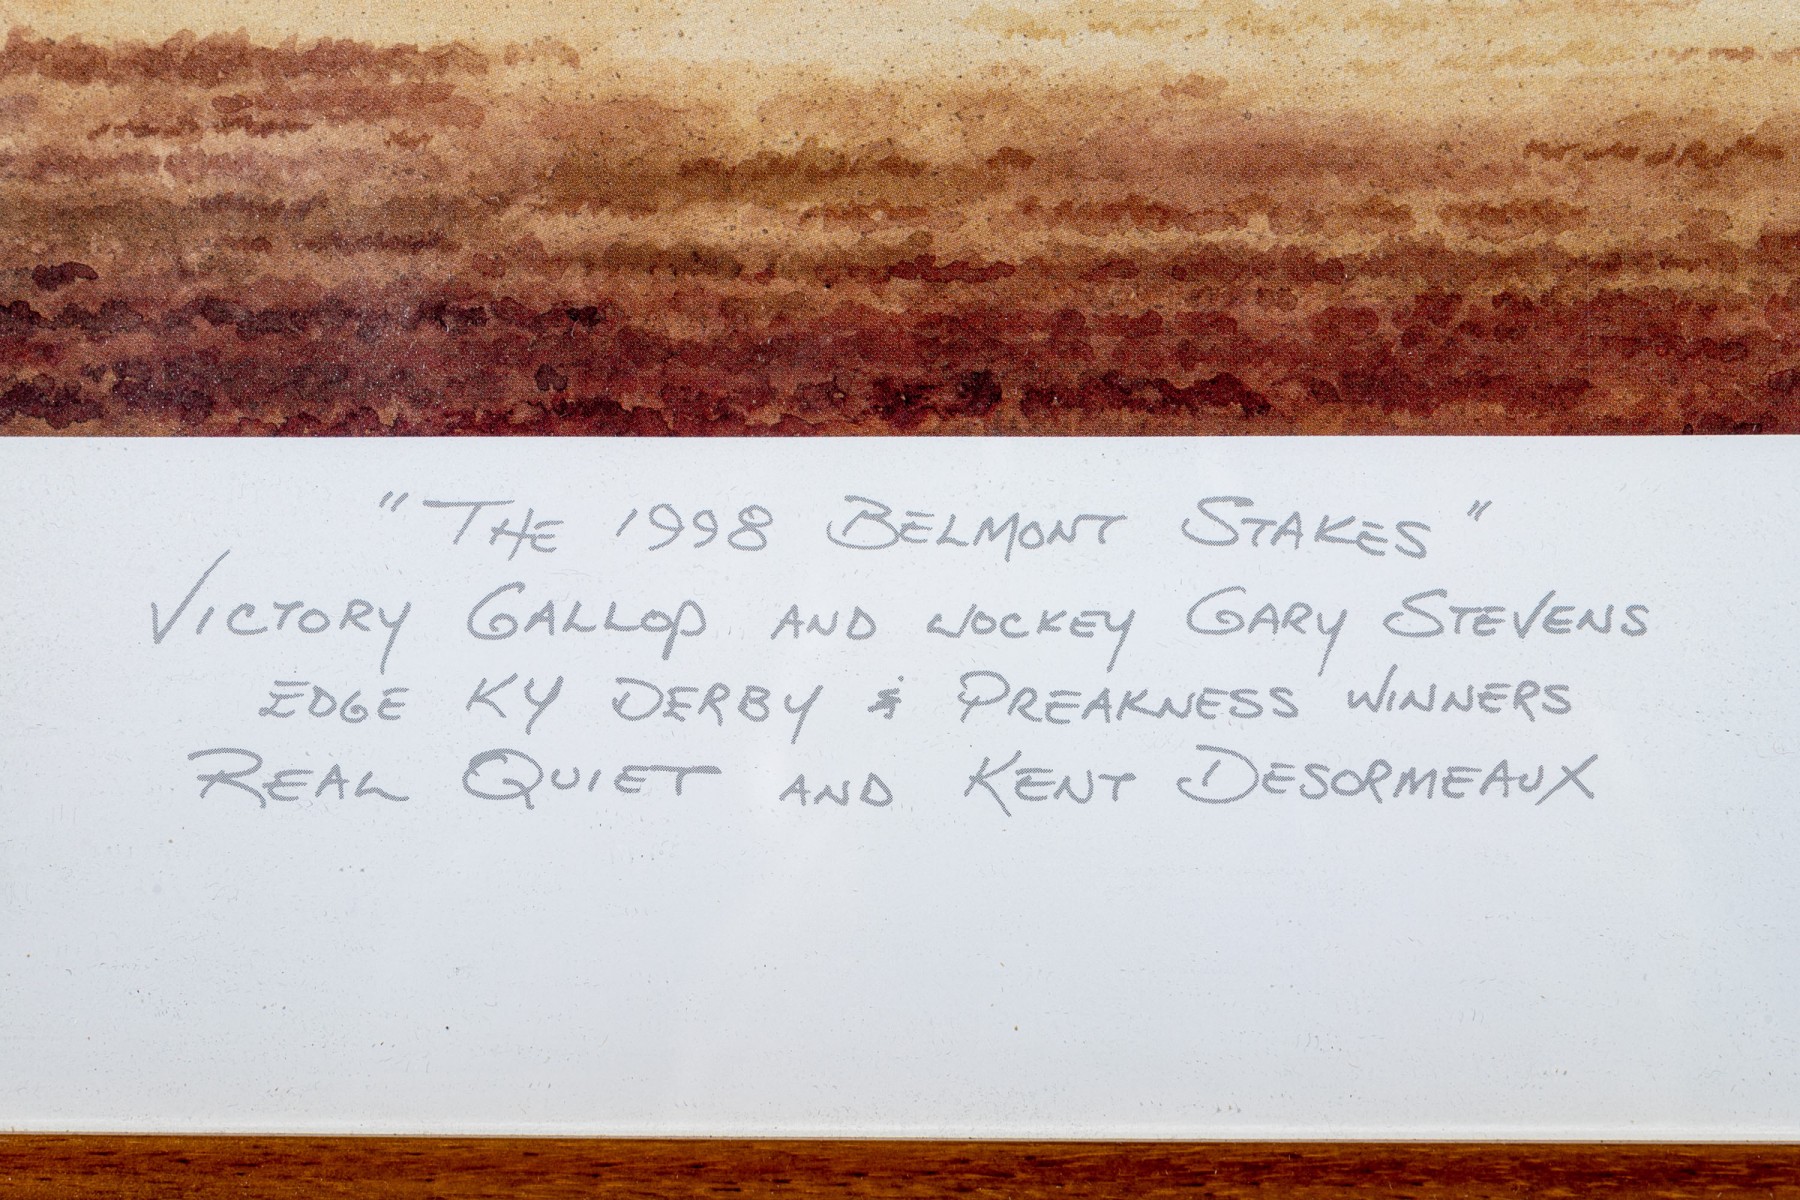 "The 1998 Belmont Stakes"
Victory Gallop and Jockey Gary Stevens
Edge KY Derby & Preakness Winners
Real Quiet and Kent Desormeaux